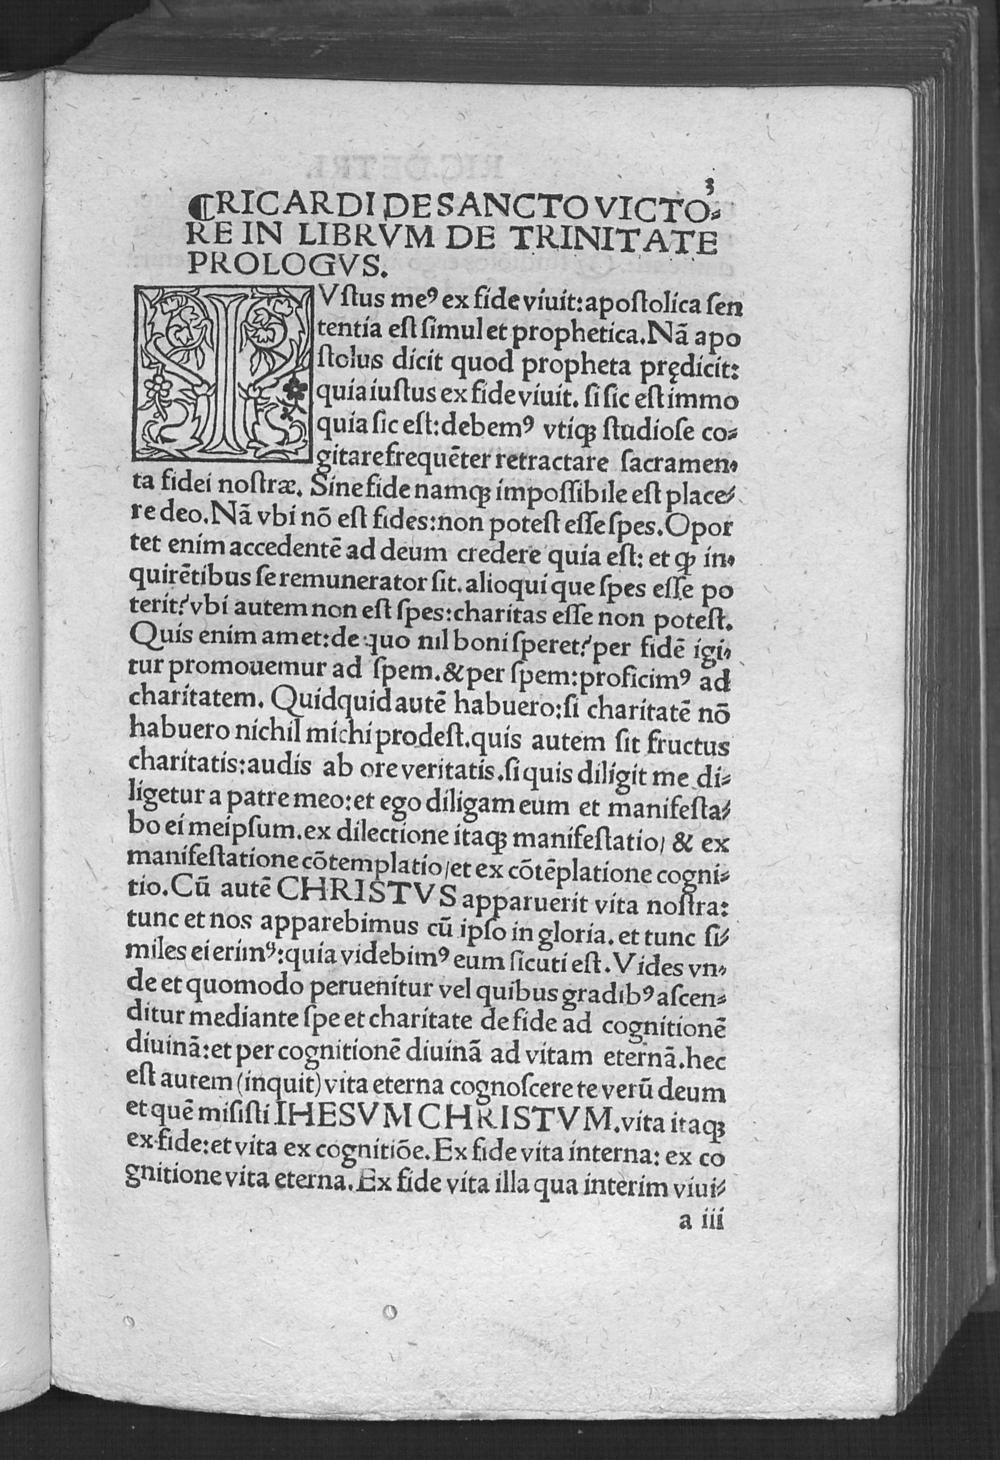 3
¶RICARDI DE SANCTO VICTO⸗
RE IN LIBRVM DE TRINITATE
PROLOGVS.
IVſtus meꝰ ex fide viuit:apoſtolica ſen
tentia eſt ſimul et prophetica.Nā apo
ſtolus dicit quod propheta prędicit:
quia iuſtus ex fide viuit. ſi ſic eſt immo
quia ſic eſt:debemꝰ vtiqꝫ ſtudioſe co⸗
gitare frequēter retractare ſacramen⸗
ta fidei noſtræ. Sine fide namqꝫ impoſſibile eſt place⸗
re deo.Nā vbi nō eſt fides:non poteſt eſſe ſpes.Opor
tet enim accedentē ad deum credere quia eſt: et ꝙ in⸗
quirētibus ſe remunerator ſit. alioqui que ſpes eſſe po
terit?vbi autem non eſt ſpes:charitas eſſe non poteſt.
Quis enim amet:de quo nil boni ſperet?per fidē igi⸗
tur promouemur ad ſpem.&per ſpem:proficimꝰ ad
charitatem. Quidquid autē habuero:ſi charitatē nō
habuero nichil michi prodeſt.quis autem ſit fructus
charitatis:audis ab ore veritatis.ſi quis diligit me di⸗
ligetur a patre meo:et ego diligam eum et manifeſta⸗
bo ei meipſum.ex dilectione itaqꝫ manifeſtatio/ & ex
manifeſtatione cōtemplatio/et ex cōtēplatione cogni⸗
tio.Cū autē CHRISTVS apparuerit vita noſtra:
tunc et nos apparebimus cū ipſo in gloria. et tunc ſi⸗
miles ei erimꝰ:quia videbimꝰ eum ſicuti eſt.Vides vn⸗
de et quomodo peruenitur vel quibus gradibꝰ aſcen⸗
ditur mediante ſpe et charitate de fide ad cognitionē
diuinā:et per cognitionē diuinā ad vitam eternā.hec
eſt autem (inquit) vita eterna cognoſcere te verū deum
et quē miſiſti IHESVM CHRISTVM.vita itaqꝫ
ex fide:et vita ex cognitiōe.Ex fide vita interna: ex co
gnitione vita eterna.Ex fide vita illa qua interim viui⸗
a iii